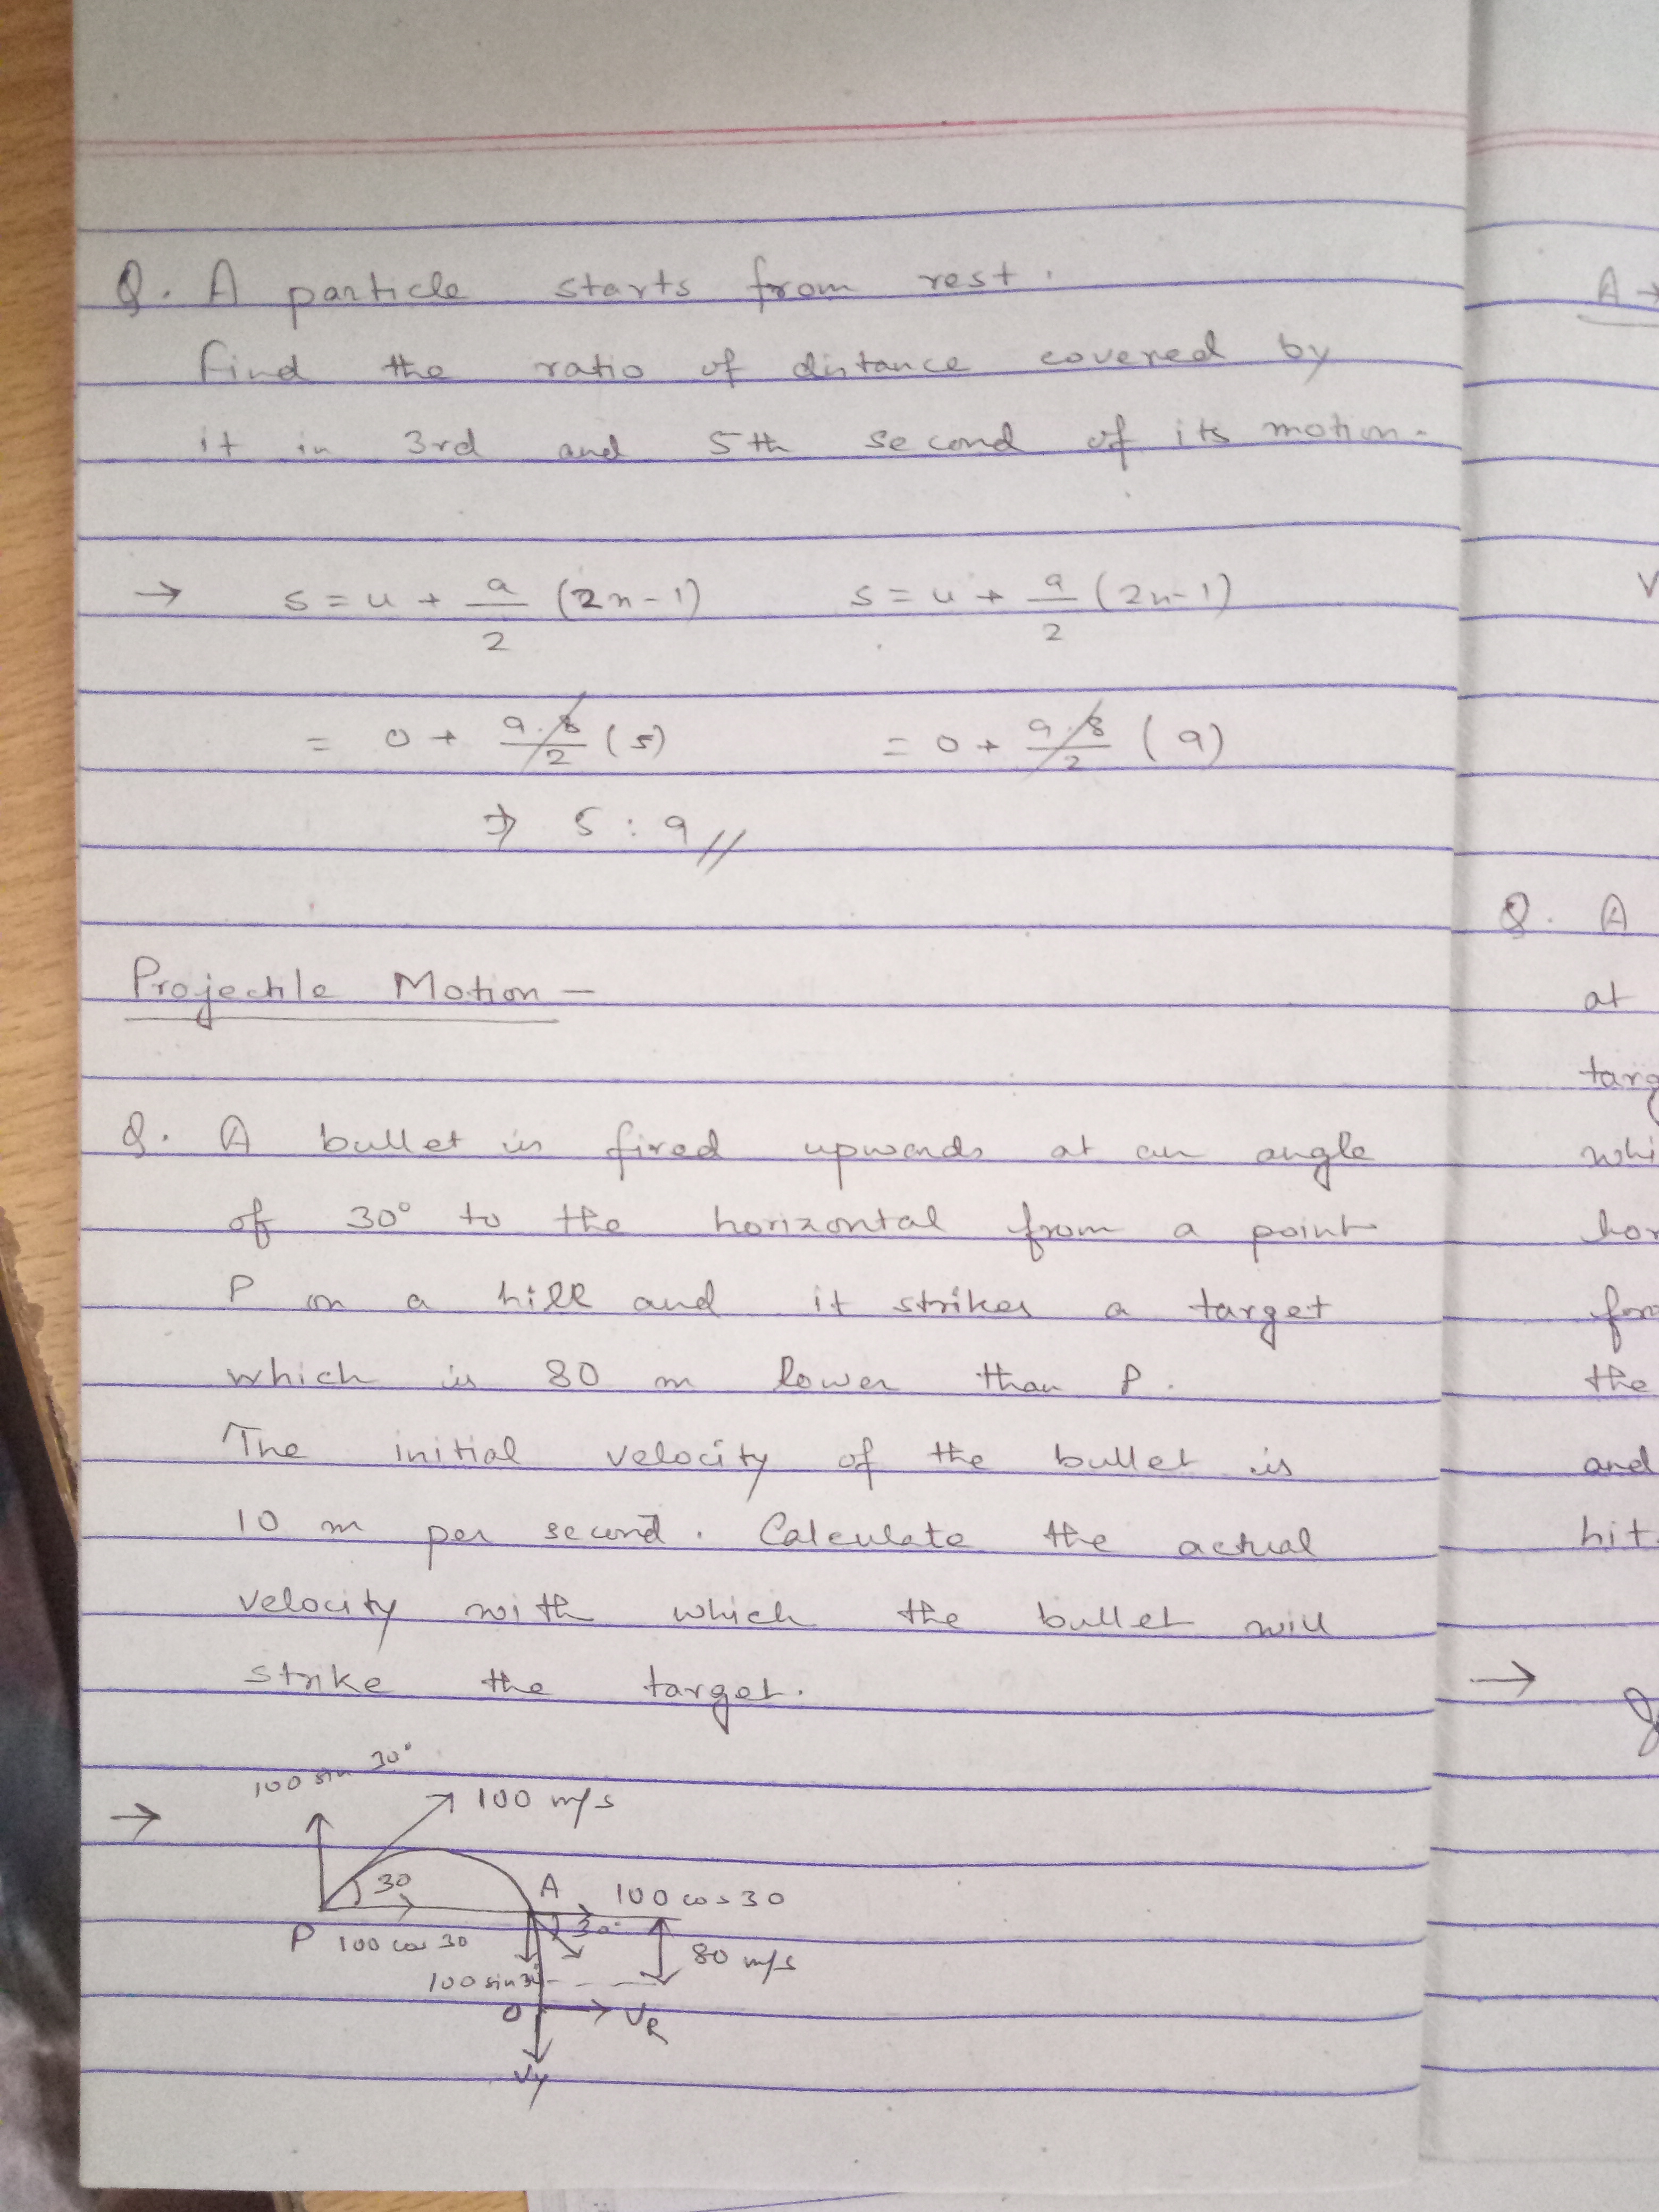 Q. A particle starts from rest.
find the ratio of distance covered by
it in 3rd and 5th second of its motion.
→ s = u + a/2 (2n-1) s = u + a/2 (2n-1)
= 0 + 9.8/2 (5) = 0 + 9.8/2 (9)
⇒ 5 : 9 //
Projectile Motion —
Q. A bullet is fired upwards at an angle
of 30° to the horizontal from a point
P on a hill and it strikes a target
which is 80 m lower than P.
The initial velocity of the bullet is
10 m per second. Calculate the actual
velocity with which the bullet will
strike the target.
100 sin 30°
→ 100 m/s
30 A 100 cos 30
P 100 cos 30 30° 80 m/s
100 sin 30
O V_R
Vy
A →
V
Q. A
at
targ
whi
hor
for
the
and
hit.
→